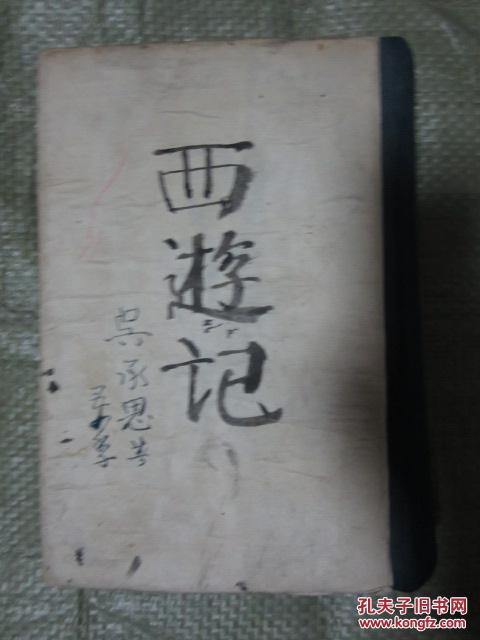 西遊记
吳承恩
孔夫子旧书网
www.kongfz.com